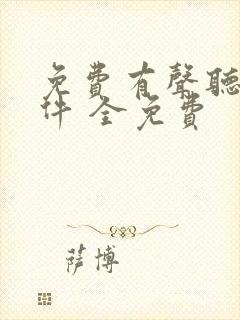 免費有聲聽
件 全免費
萨博